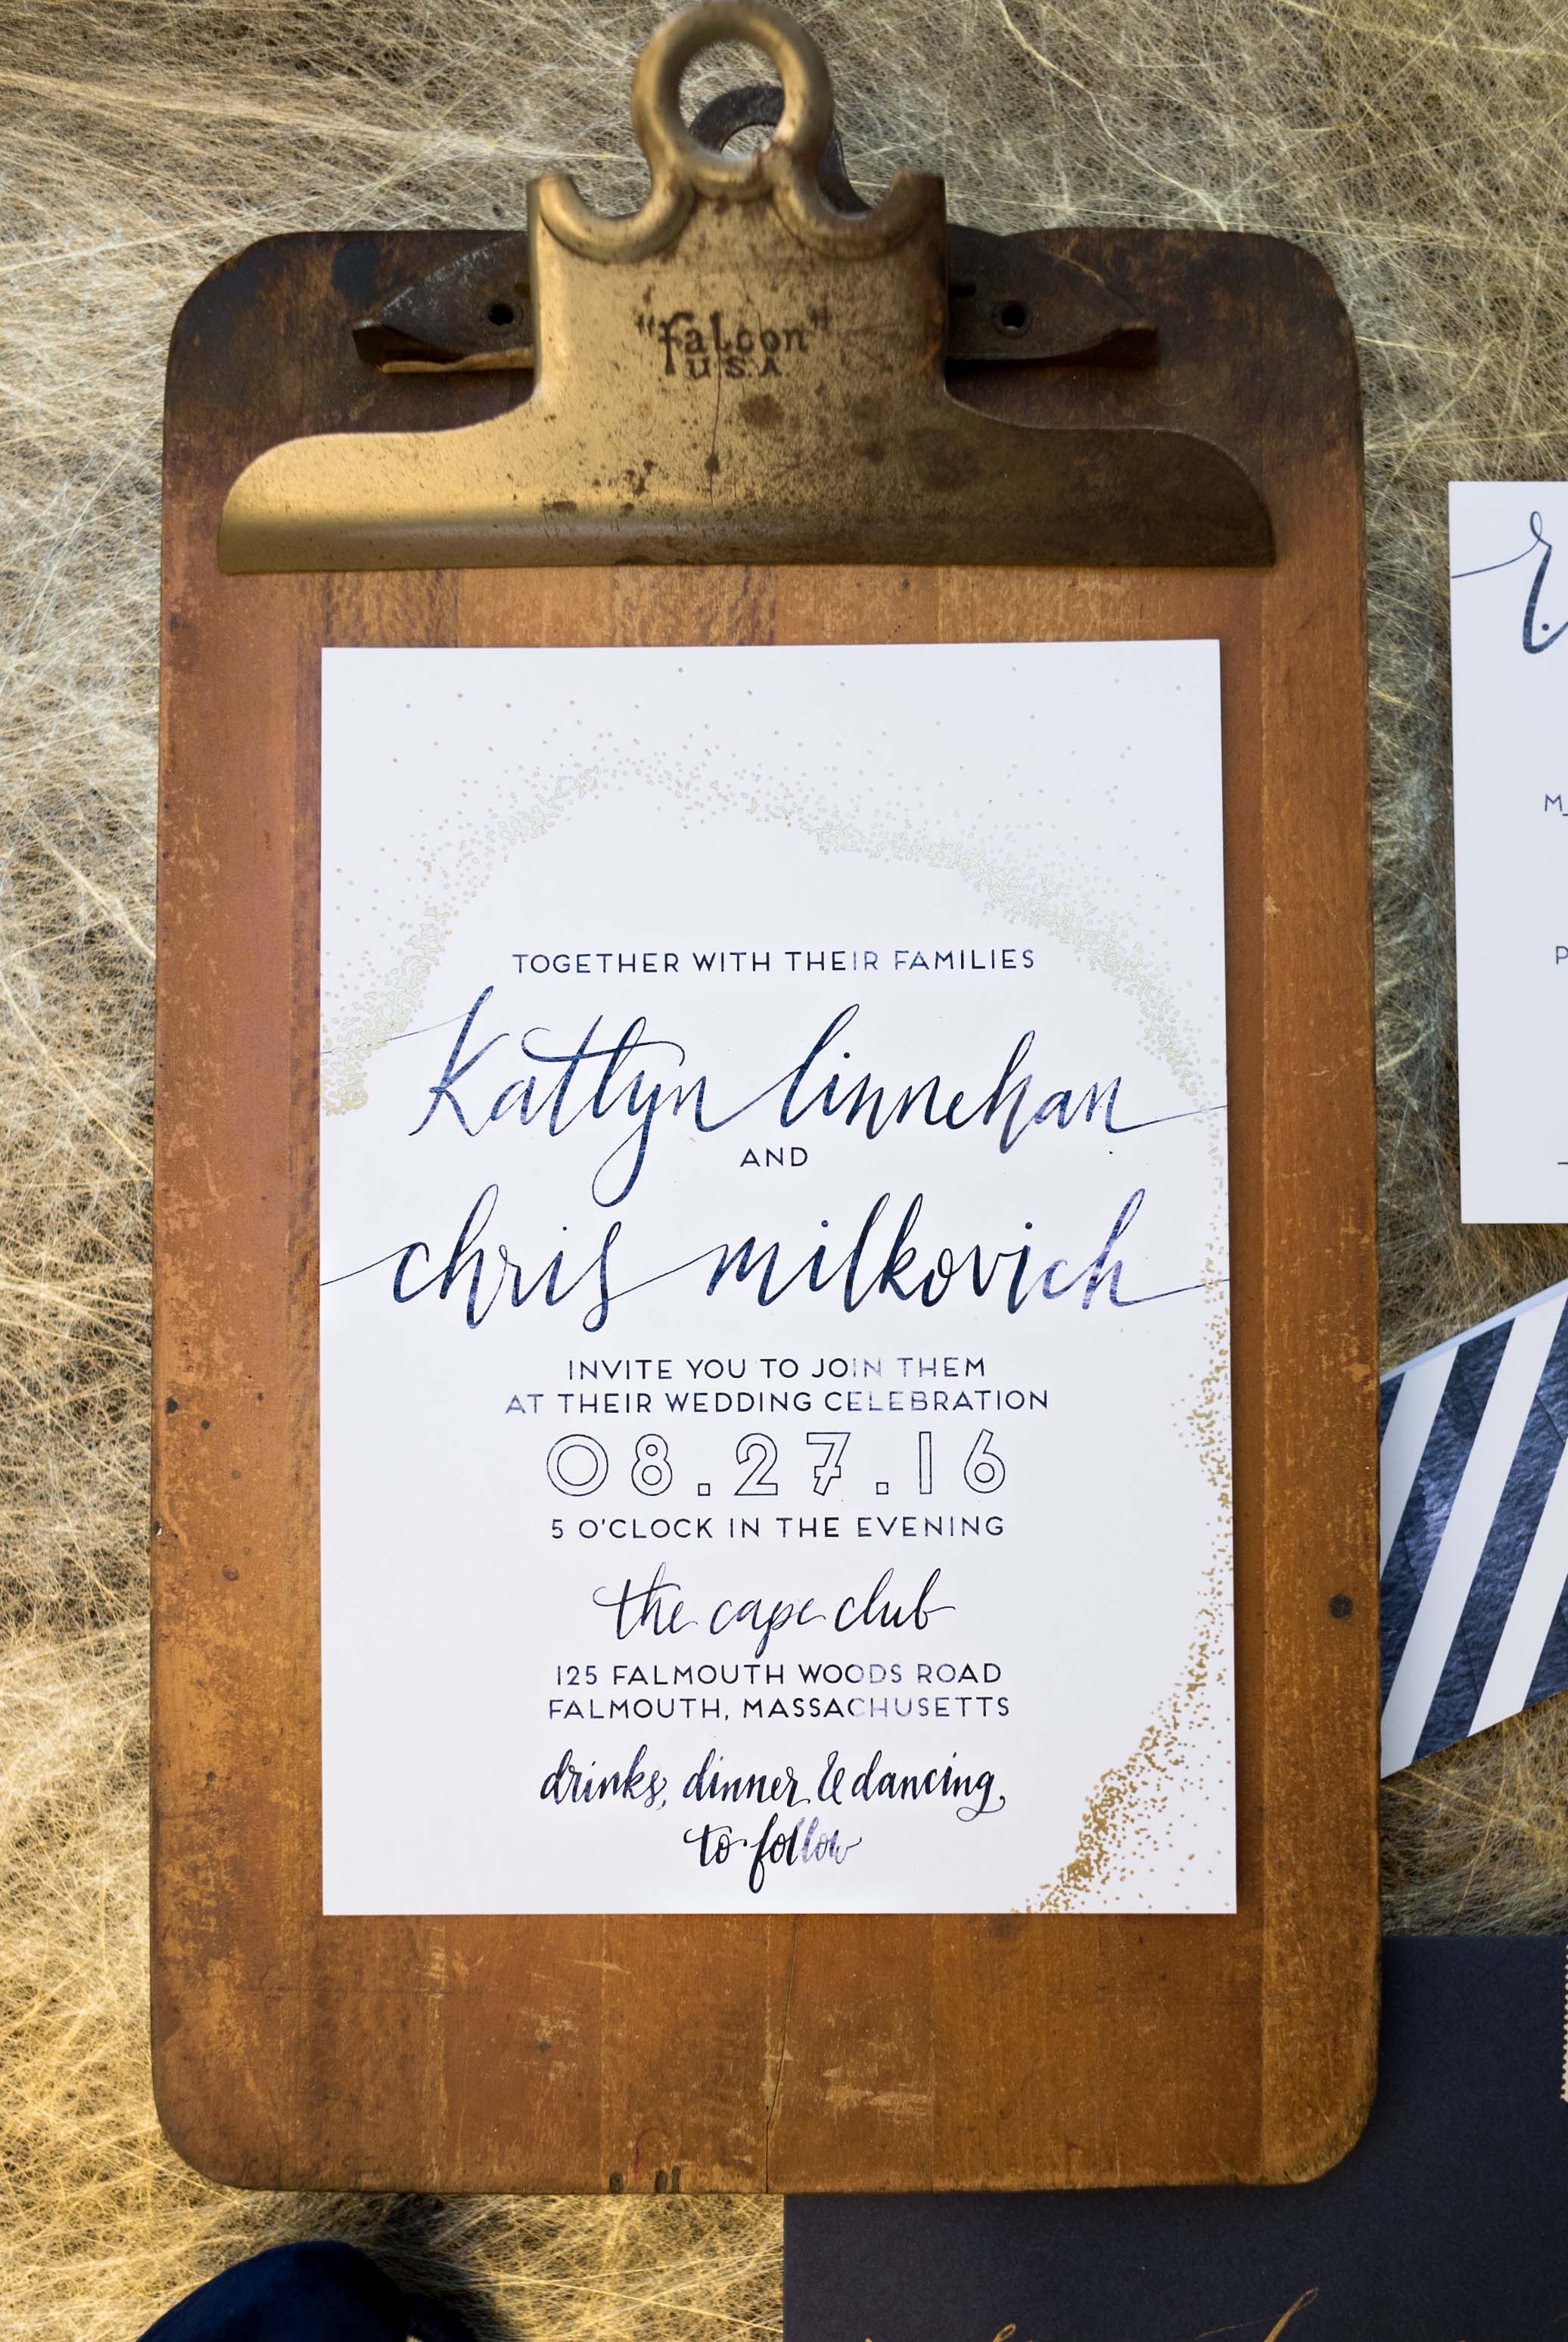 "falcon"
USA
TOGETHER WITH THEIR FAMILIES
Katlyn linnehan
AND
chris milkovich
INVITE YOU TO JOIN THEM
AT THEIR WEDDING CELEBRATION
08.27.16
5 O'CLOCK IN THE EVENING
the cape club
125 FALMOUTH WOODS ROAD
FALMOUTH, MASSACHUSETTS
drinks, dinner & dancing,
to follow
M